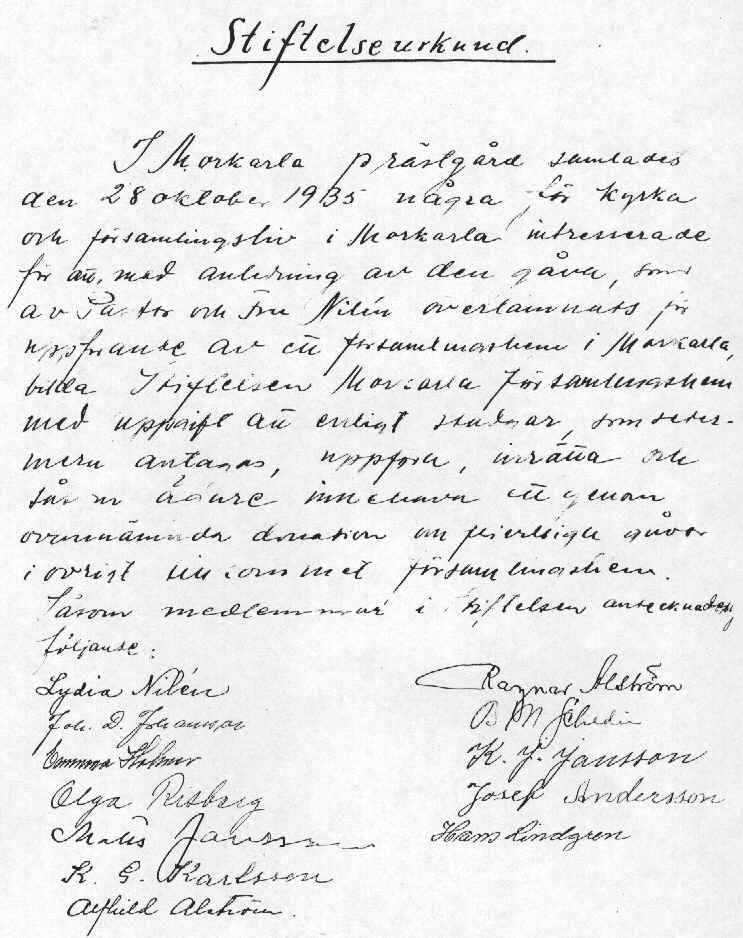 Stiftelseurkund.
I Morkarla prästgård samlades
den 28 oktober 1935 några för kyrka
och församlingsliv i Morkarla intresserade
för att, med anledning av den gåva, som
av Pastor och Fru Nilén överlämnats för
uppförande av ett församlingshem i Morkarla,
bilda Stiftelsen Morkarla Församlingshem
med uppgift att enligt stadgar, som seder-
mera antagas, uppföra, inrätta och
såsom ägare innehava ett genom
ovannämnda donation och frivilliga gåvor
i övrigt tillkommet församlingshem.
Såsom medlemmar i Stiftelsen antecknades
följande:
Lydia Nilén
Joh. D. Johansson
Olga Risberg
Mats Jansson
K. G. Karlsson
Alfhild Alström.
Ragnar Alström
B M Schedin
K. J. Jansson
Josef Andersson
Hans Lindgren